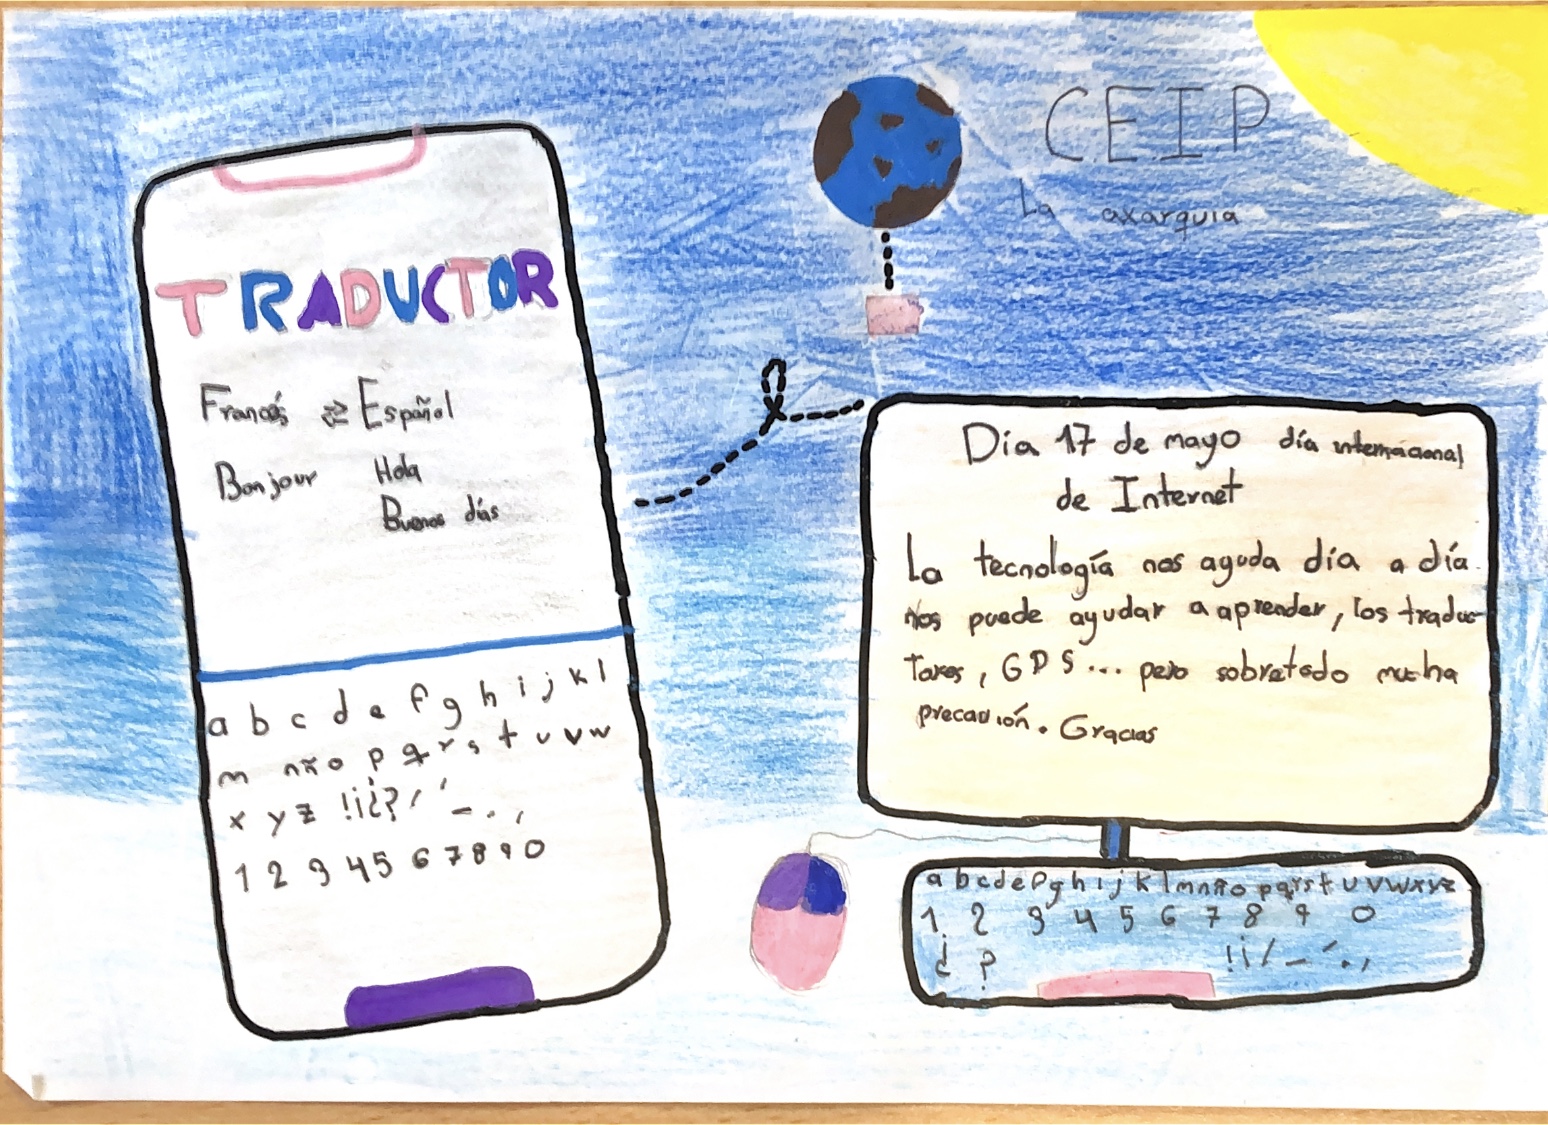 CEIP
La axarquia
TRADUCTOR
Francés ⇄ Español
Bonjour Hola
Buenos días
a b c d e f g h i j k l
m n ñ o p q r s t u v w
x y z ! ¡ ¿ ? / ´ - . ,
1 2 3 4 5 6 7 8 9 0
Día 17 de mayo día internacional
de Internet
La tecnología nos aguda día a día.
Nos puede ayudar a aprender, los traduc-
tores, GPS... pero sobretodo mucha
precaución. Gracias
a b c d e f g h i j k l m n ñ o p q r s t u v w x y z
1 2 3 4 5 6 7 8 9 0
¿ ? ! ¡ / - ´ . ,